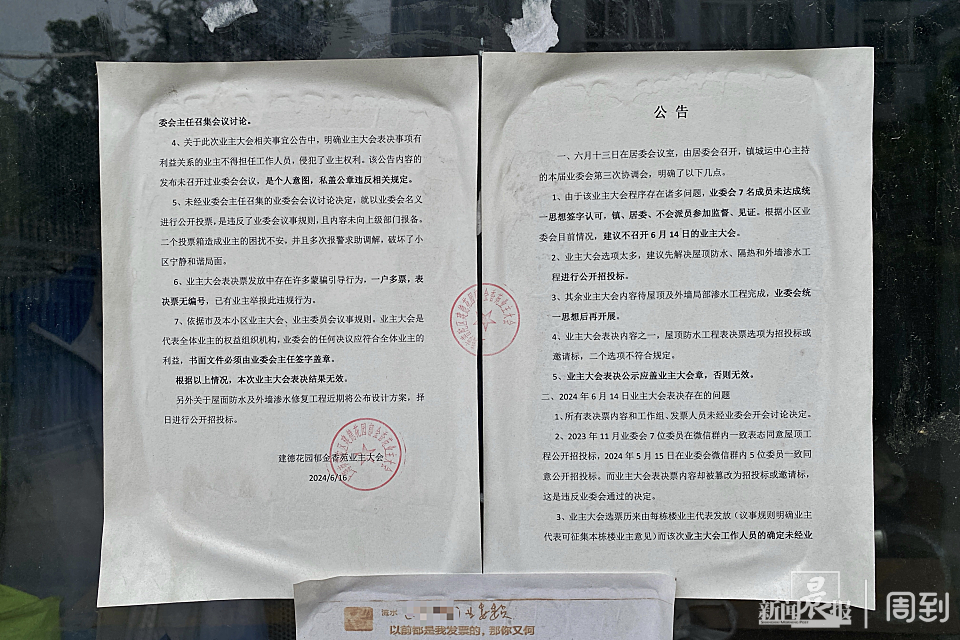 公 告
一、六月十三日在居委会议室，由居委会召开，镇城运中心主持
的本届业委会第三次协调会，明确了以下几点。
1、由于该业主大会程序存在诸多问题，业委会 7 名成员未达成统
一思想签字认可，镇、居委、不会派员参加监督、见证。根据小区业
委会目前情况，建议不召开 6 月 14 日的业主大会。
2、业主大会选项太多，建议先解决屋顶防水、隔热和外墙渗水工
程进行公开招投标。
3、其余业主大会内容待屋顶及外墙局部渗水工程完成，业委会统
一思想后再开展。
4、业主大会表决内容之一，屋顶防水工程表决票选项为招投标或
邀请标，二个选项不符合规定。
5、业主大会表决公示应盖业主大会章，否则无效。
二、2024 年 6 月 14 日业主大会表决存在的问题
1、所有表决票内容和工作组、发票人员未经业委会开会讨论决定。
2、2023 年 11 月业委会 7 位委员在微信群内一致表态同意屋顶工
程公开招投标，2024 年 5 月 15 日在业委会微信群内 5 位委员一致同
意公开招投标。而业主大会表决票内容却被篡改为招投标或邀请标，
这是违反业委会通过的决定。
3、业主大会选票历来由每栋楼业主代表发放（议事规则明确业主
代表可征集本栋楼业主意见）而该次业主大会工作人员的确定未经业
委会主任召集会议讨论。
4、关于此次业主大会相关事宜公告中，明确业主大会表决事项有
利益关系的业主不得担任工作人员，侵犯了业主权利。该公告内容的
发布未召开过业委会会议，是个人意图，私盖公章违反相关规定。
5、未经业委会主任召集的业委会会议讨论决定，就以业委会名义
进行公开投票，是违反了业委会议事规则，且内容未向上级部门报备。
二个投票箱造成业主的困扰不安，并且多次报警求助调解，破坏了小
区宁静和谐局面。
6、业主大会表决票发放中存在许多蒙骗引导行为，一户多票，表
决票无编号，已有业主举报此违规行为。
7、依据市及本小区业主大会、业主委员会议事规则，业主大会是
代表全体业主的权益组织机构，业委会的任何决议应符合全体业主的
利益，书面文件必须由业委会主任签字盖章。
根据以上情况，本次业主大会表决结果无效。
另外关于屋面防水及外墙渗水修复工程近期将公布设计方案，择
日进行公开招投标。
建德花园郁金香苑业主大会
2024/6/16
流水
以前都是我发票的，那你又何
新闻晨报
周到